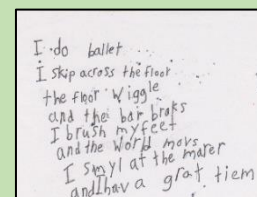 I do ballet
I skip across the floor
the floor wiggle
and the bar braks
I brush my feet
and the world movs
I smyl at the marer
and I hav a grat tiem